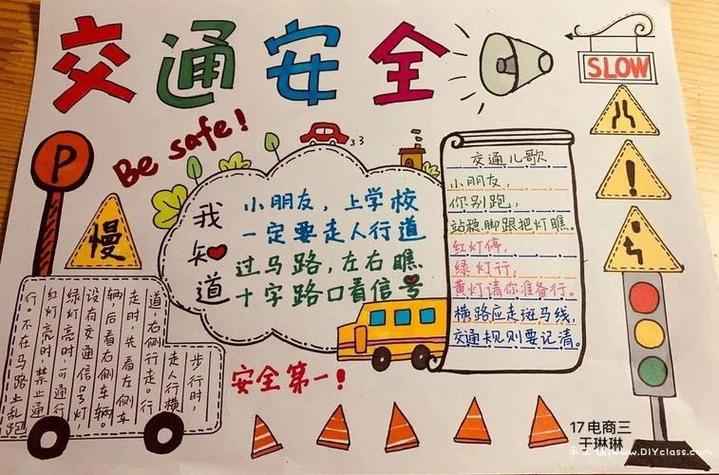 交通安全
SLOW
Be safe!
P
慢
我知道
小朋友，上学校
一定要走人行道
过马路，左右瞧
十字路口看信号
交通儿歌
小朋友，
你别跑，
站稳脚跟把灯瞧。
红灯停，
绿灯行，
黄灯请你准备行。
横路应走斑马线，
交通规则要记清。
步行时，
走人行横
道，右侧行走。行
走时，先看左侧车
辆后看右侧车辆。
设有交通信号灯，
绿灯亮时，可通行
红灯亮时，禁止通
行。不在马路上乱跑
安全第一！
17电商三
于琳琳
www.DIYclass.com